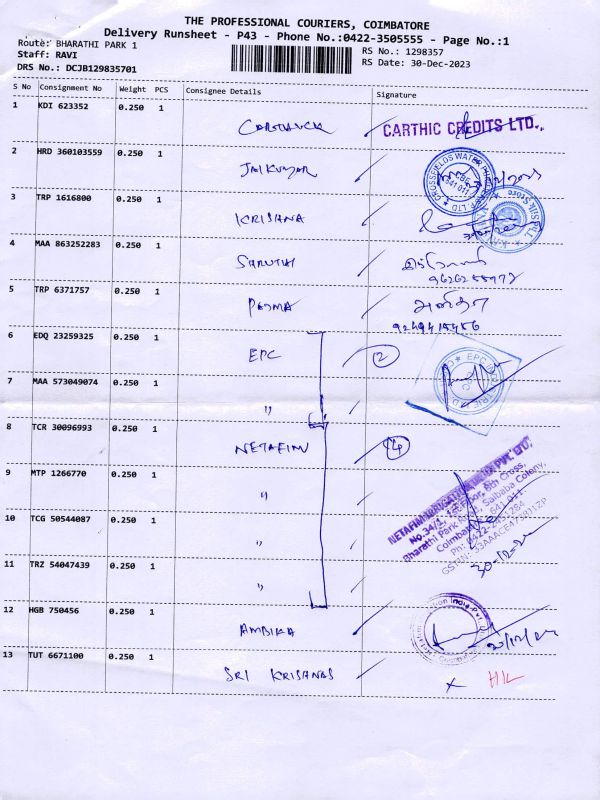 THE PROFESSIONAL COURIERS, COIMBATORE
Delivery Runsheet - P43 - Phone No.:0422-3505555 - Page No.:1
Route: BHARATHI PARK 1
Staff: RAVI
DRS No.: DCJB129835701
RS No.: 1298357
RS Date: 30-Dec-2023
S No Consignment No Weight PCS Consignee Details Signature
1 KDI 623352 0.250 1
CARTHIC CREDITS LTD.,
2 HRD 360103559 0.250 1 JAIKUMAR
3 TRP 1616800 0.250 1 KRISHNA
4 MAA 863252283 0.250 1
5 TRP 6371757 0.250 1 PADMA
6 EDQ 23259325 0.250 1 EPC 2
7 MAA 573049074 0.250 1 "
8 TCR 30096993 0.250 1 NETAFIM 4
9 MTP 1266770 0.250 1 "
10 TCG 50544087 0.250 1 "
11 TRZ 54047439 0.250 1 "
No.34/1, 1st Floor, 8th Cross,
Bharathi Park Road, Saibaba Colony,
Coimbatore - 641 011
12 HGB 750456 0.250 1 AMBIKA
13 TUT 6671100 0.250 1 SRI KRISHNAS